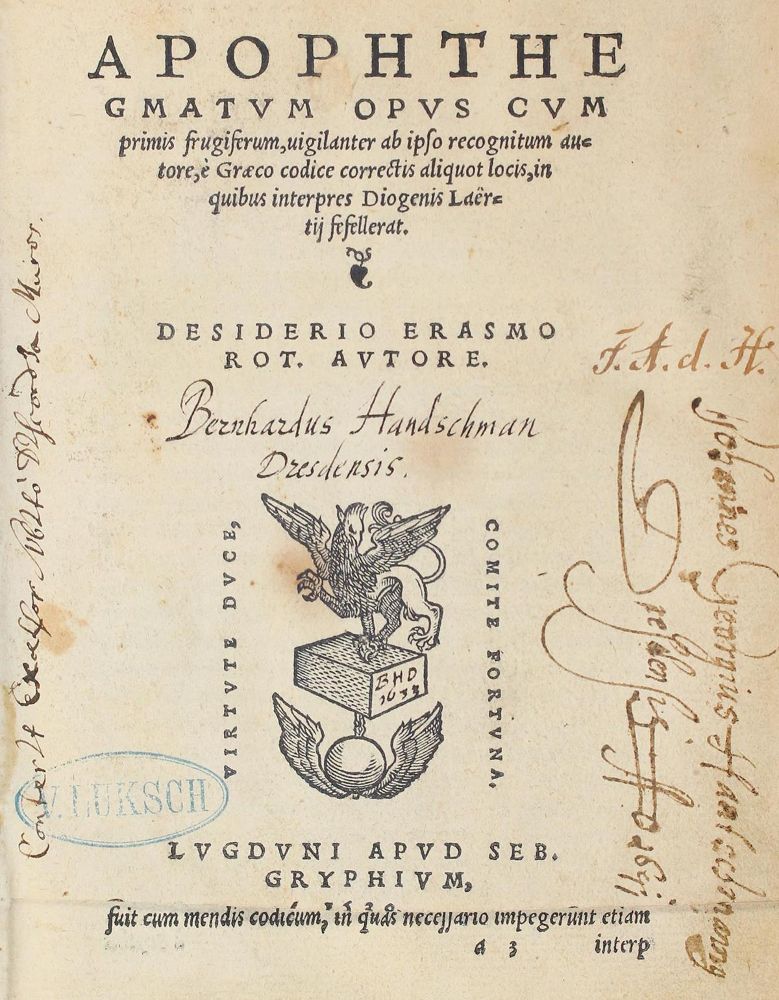 APOPHTHE
GMATVM OPVS CVM
primis frugiferum,uigilanter ab ipso recognitum au=
tore,è Græco codice correctis aliquot locis,in
quibus interpres Diogenis Laër=
tij fefellerat.
DESIDERIO ERASMO
ROT. AVTORE.
F. A. d. H.
Bernhardus Handschman
Dresdensis.
VIRTVTE DVCE,
COMITE FORTVNA.
BHD
1633
Johannes Georgius
Dresdensis
V. LUKSCH
LVGDVNI APVD SEB.
GRYPHIVM,
fuit cum mendis codicum, in quas necessario impegerunt etiam
a 3 interp